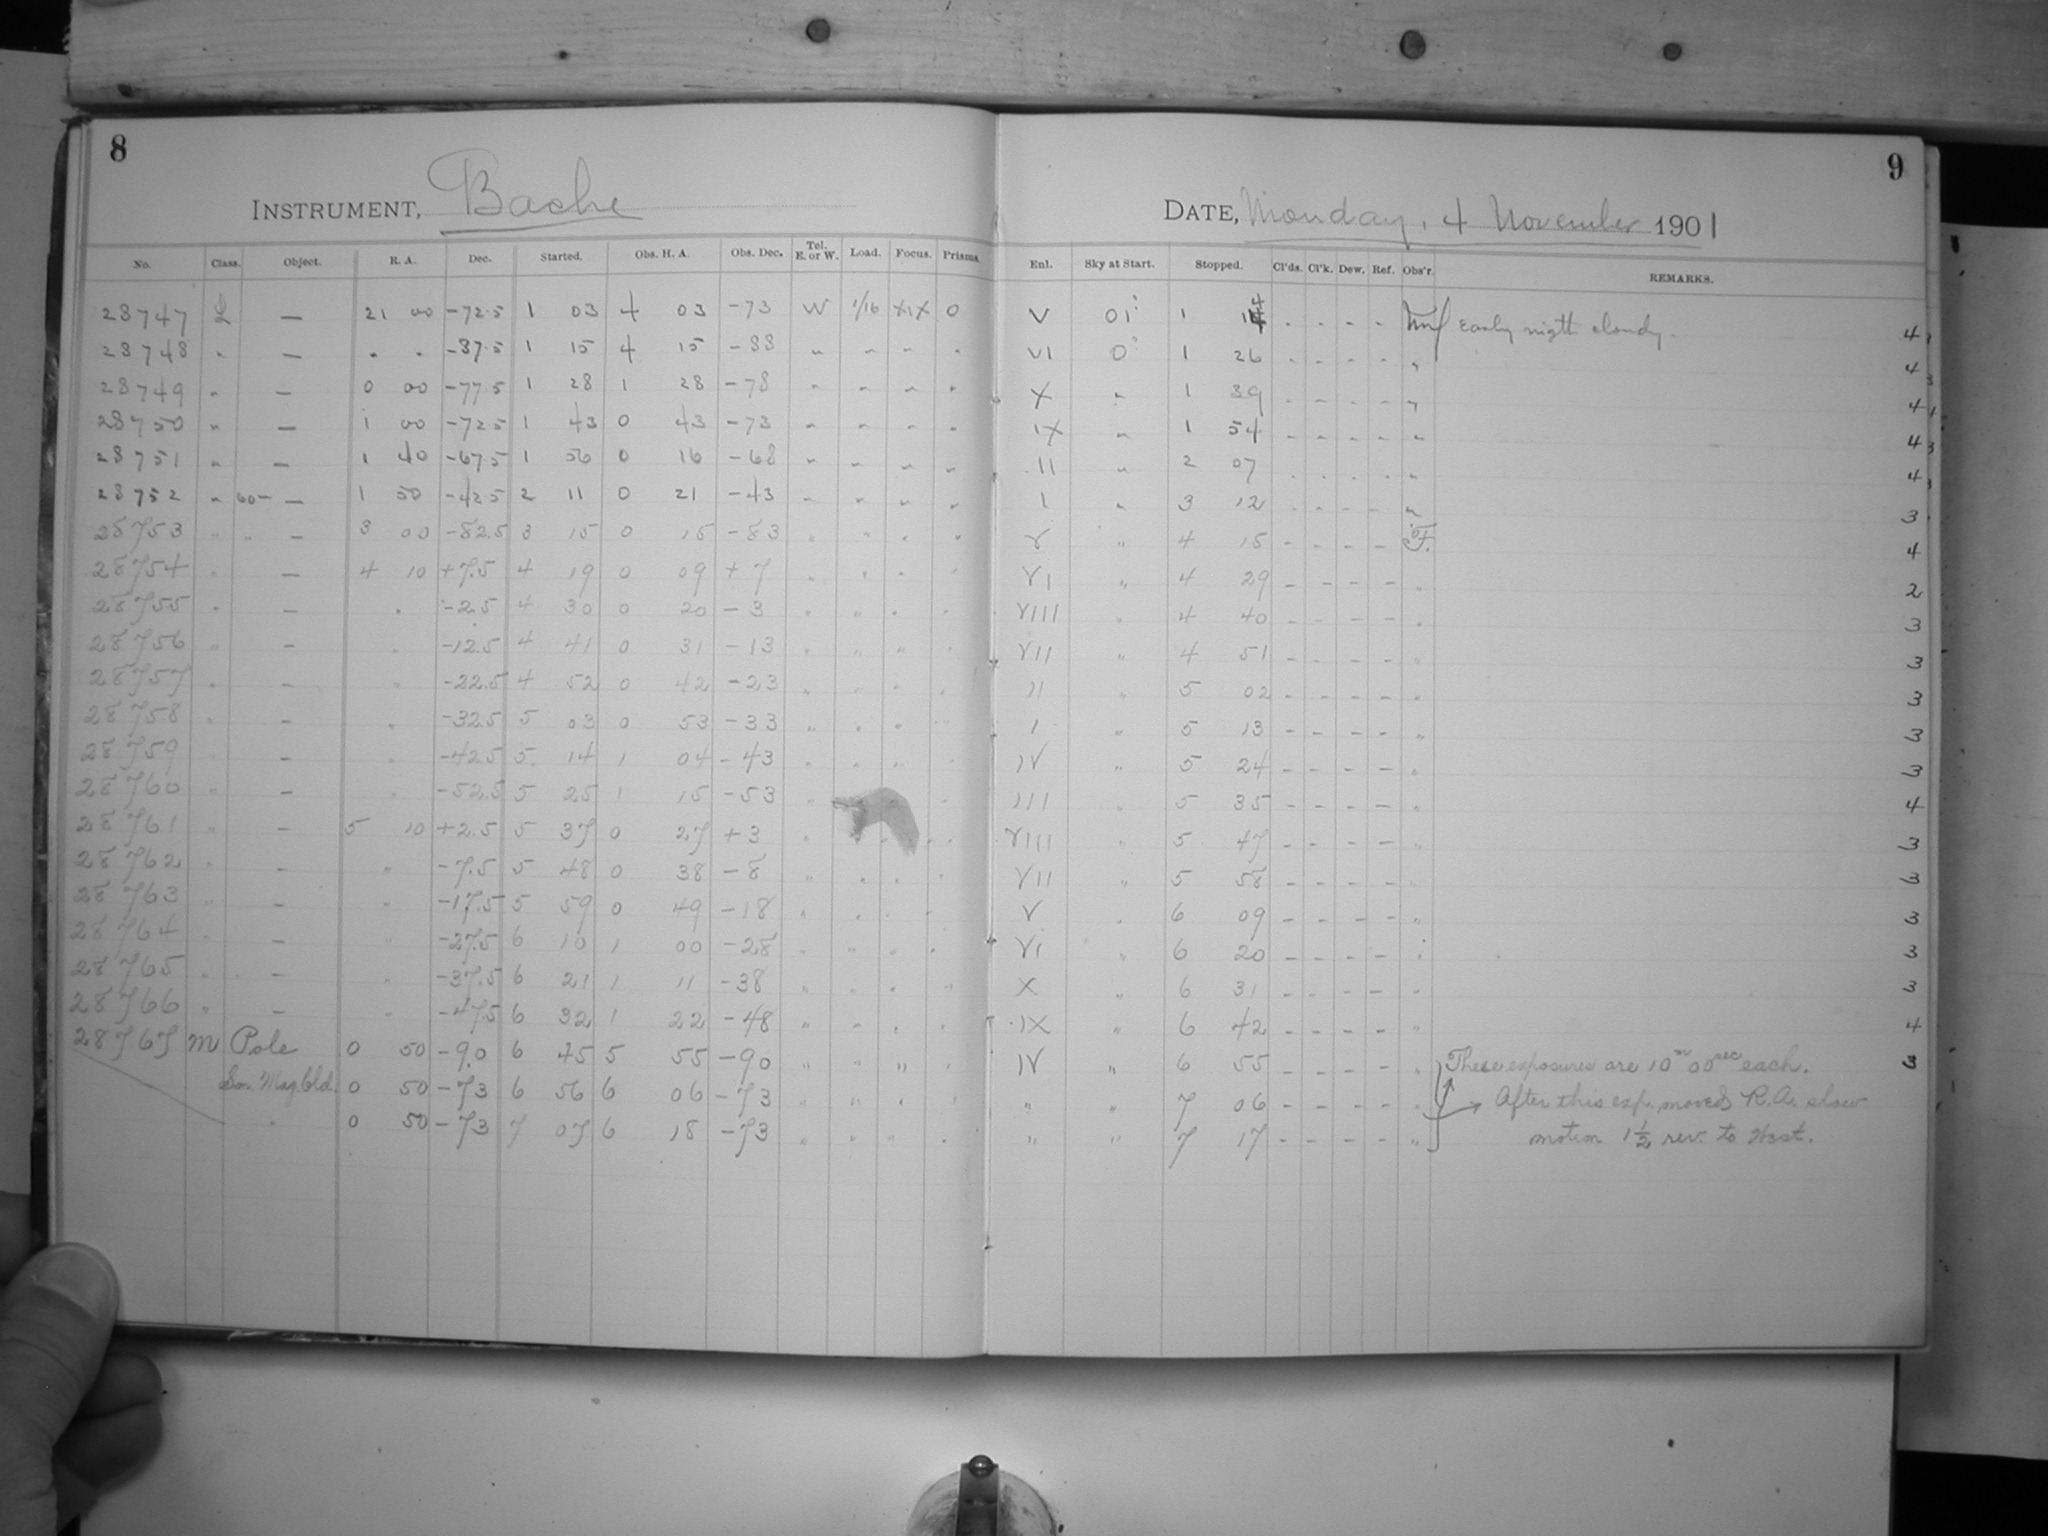 8
9
INSTRUMENT, Bache
DATE, Monday, 4 November 1901
No. Class. Object. R. A. Dec. Started. Obs. H. A. Obs. Dec. Tel. E. or W. Load. Focus. Prisms. Enl. Sky at Start. Stopped. Cl'ds. Cl'k. Dew. Ref. Obs'r. REMARKS.
28747 L — 21 00 -72.5 1 03 4 03 -73 W 1/16 XIX 0 V 01: 1 14 . - - - early nigth cloudy. 4
28748 " — " " -87.5 1 15 4 15 -88 " " " " VI 0: 1 26 - - - - " 4
28749 " — 0 00 -77.5 1 28 1 28 -78 " " " " X " 1 39 - - - - " 4
28750 " — 1 00 -72.5 1 43 0 43 -73 " " " " IX " 1 54 - - - - " 4
28751 " — 1 40 -67.5 1 56 0 16 -68 " " " " II " 2 07 - - - - " 4
28752 " 60m — 1 50 -42.5 2 11 0 21 -43 " " " " I " 3 12 - - - - " 3
28753 " " — 3 00 -82.5 3 15 0 15 -83 " " " " V " 4 15 - - - - F. 4
28754 " — 4 10 +7.5 4 19 0 09 +7 " " " " VI " 4 29 - - - - " 2
28755 " — " -2.5 4 30 0 20 -3 " " " " VIII " 4 40 - - - - " 3
28756 " — " -12.5 4 41 0 31 -13 " " " " VII " 4 51 - - - - " 3
28757 " — " -22.5 4 52 0 42 -23 " " " " II " 5 02 - - - - " 3
28758 " — " -32.5 5 03 0 53 -33 " " " " I " 5 13 - - - - " 3
28759 " — " -42.5 5 14 1 04 -43 " " " " IV " 5 24 - - - - " 3
28760 " — " -52.5 5 25 1 15 -53 " " " " III " 5 35 - - - - " 4
28761 " — 5 10 +2.5 5 37 0 27 +3 " " " " VIII " 5 47 - - - - " 3
28762 " — " -7.5 5 48 0 38 -8 " " " " VII " 5 58 - - - - " 3
28763 " — " -17.5 5 59 0 49 -18 " " " " V " 6 09 - - - - " 3
28764 " — " -27.5 6 10 1 00 -28 " " " " VI " 6 20 - - - - " 3
28765 " — " -37.5 6 21 1 11 -38 " " " " X " 6 31 - - - - " 3
28766 " — " -47.5 6 32 1 22 -48 " " " " IX " 6 42 - - - - " 4
28767 m Pole 0 50 -90 6 45 5 55 -90 " " " " IV " 6 55 - - - - " These exposures are 10m 00sec each. 3
Sm. Mag. Cld. 0 50 -73 6 56 6 06 -73 " " " " " " 7 06 - - - - " After this exp. moved R.A. slow
" 0 50 -73 7 07 6 18 -73 " " " " " " 7 17 - - - - " motion 1½ rev. to West.